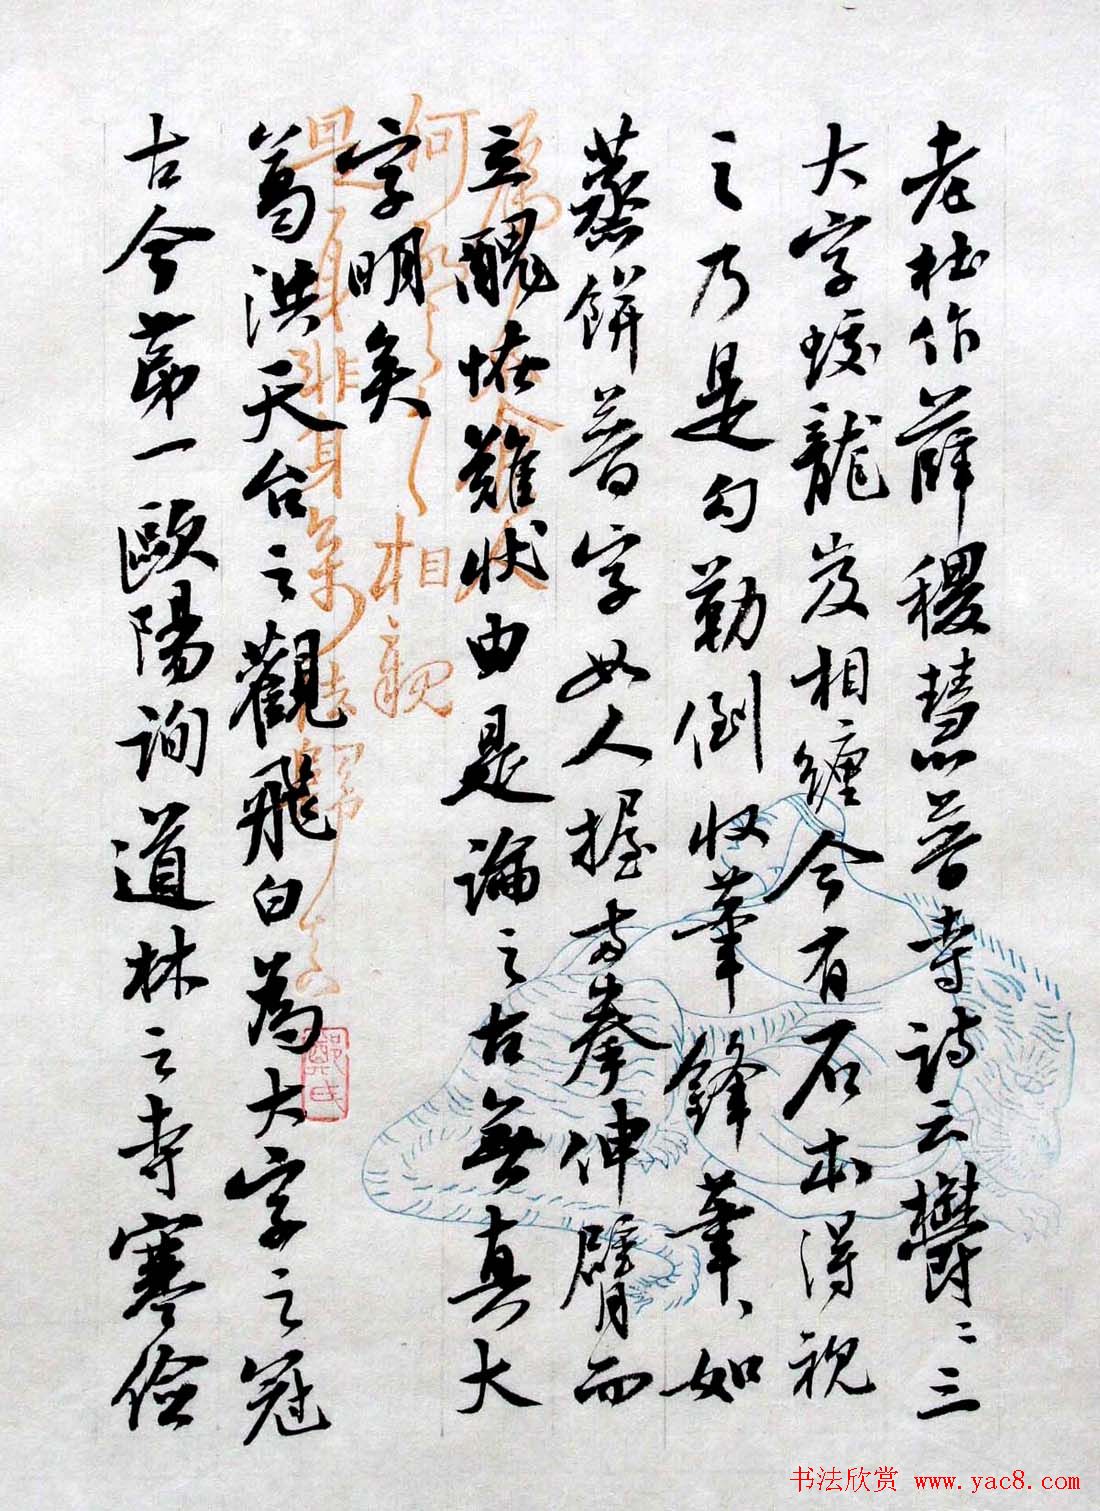 老杜作薛稷慧普寺詩云欝〻三
大字蛟龍岌相纏今有石本得視
之乃是勾勒倒收筆鋒筆、如
蒸餅普字如人握兩拳伸臂而
立醜恠難狀由是論之古無真大
字明矣
葛洪天台之觀飛白為大字之冠
古今第一歐陽詢道林之寺寒儉
书法欣赏 www.yac8.com